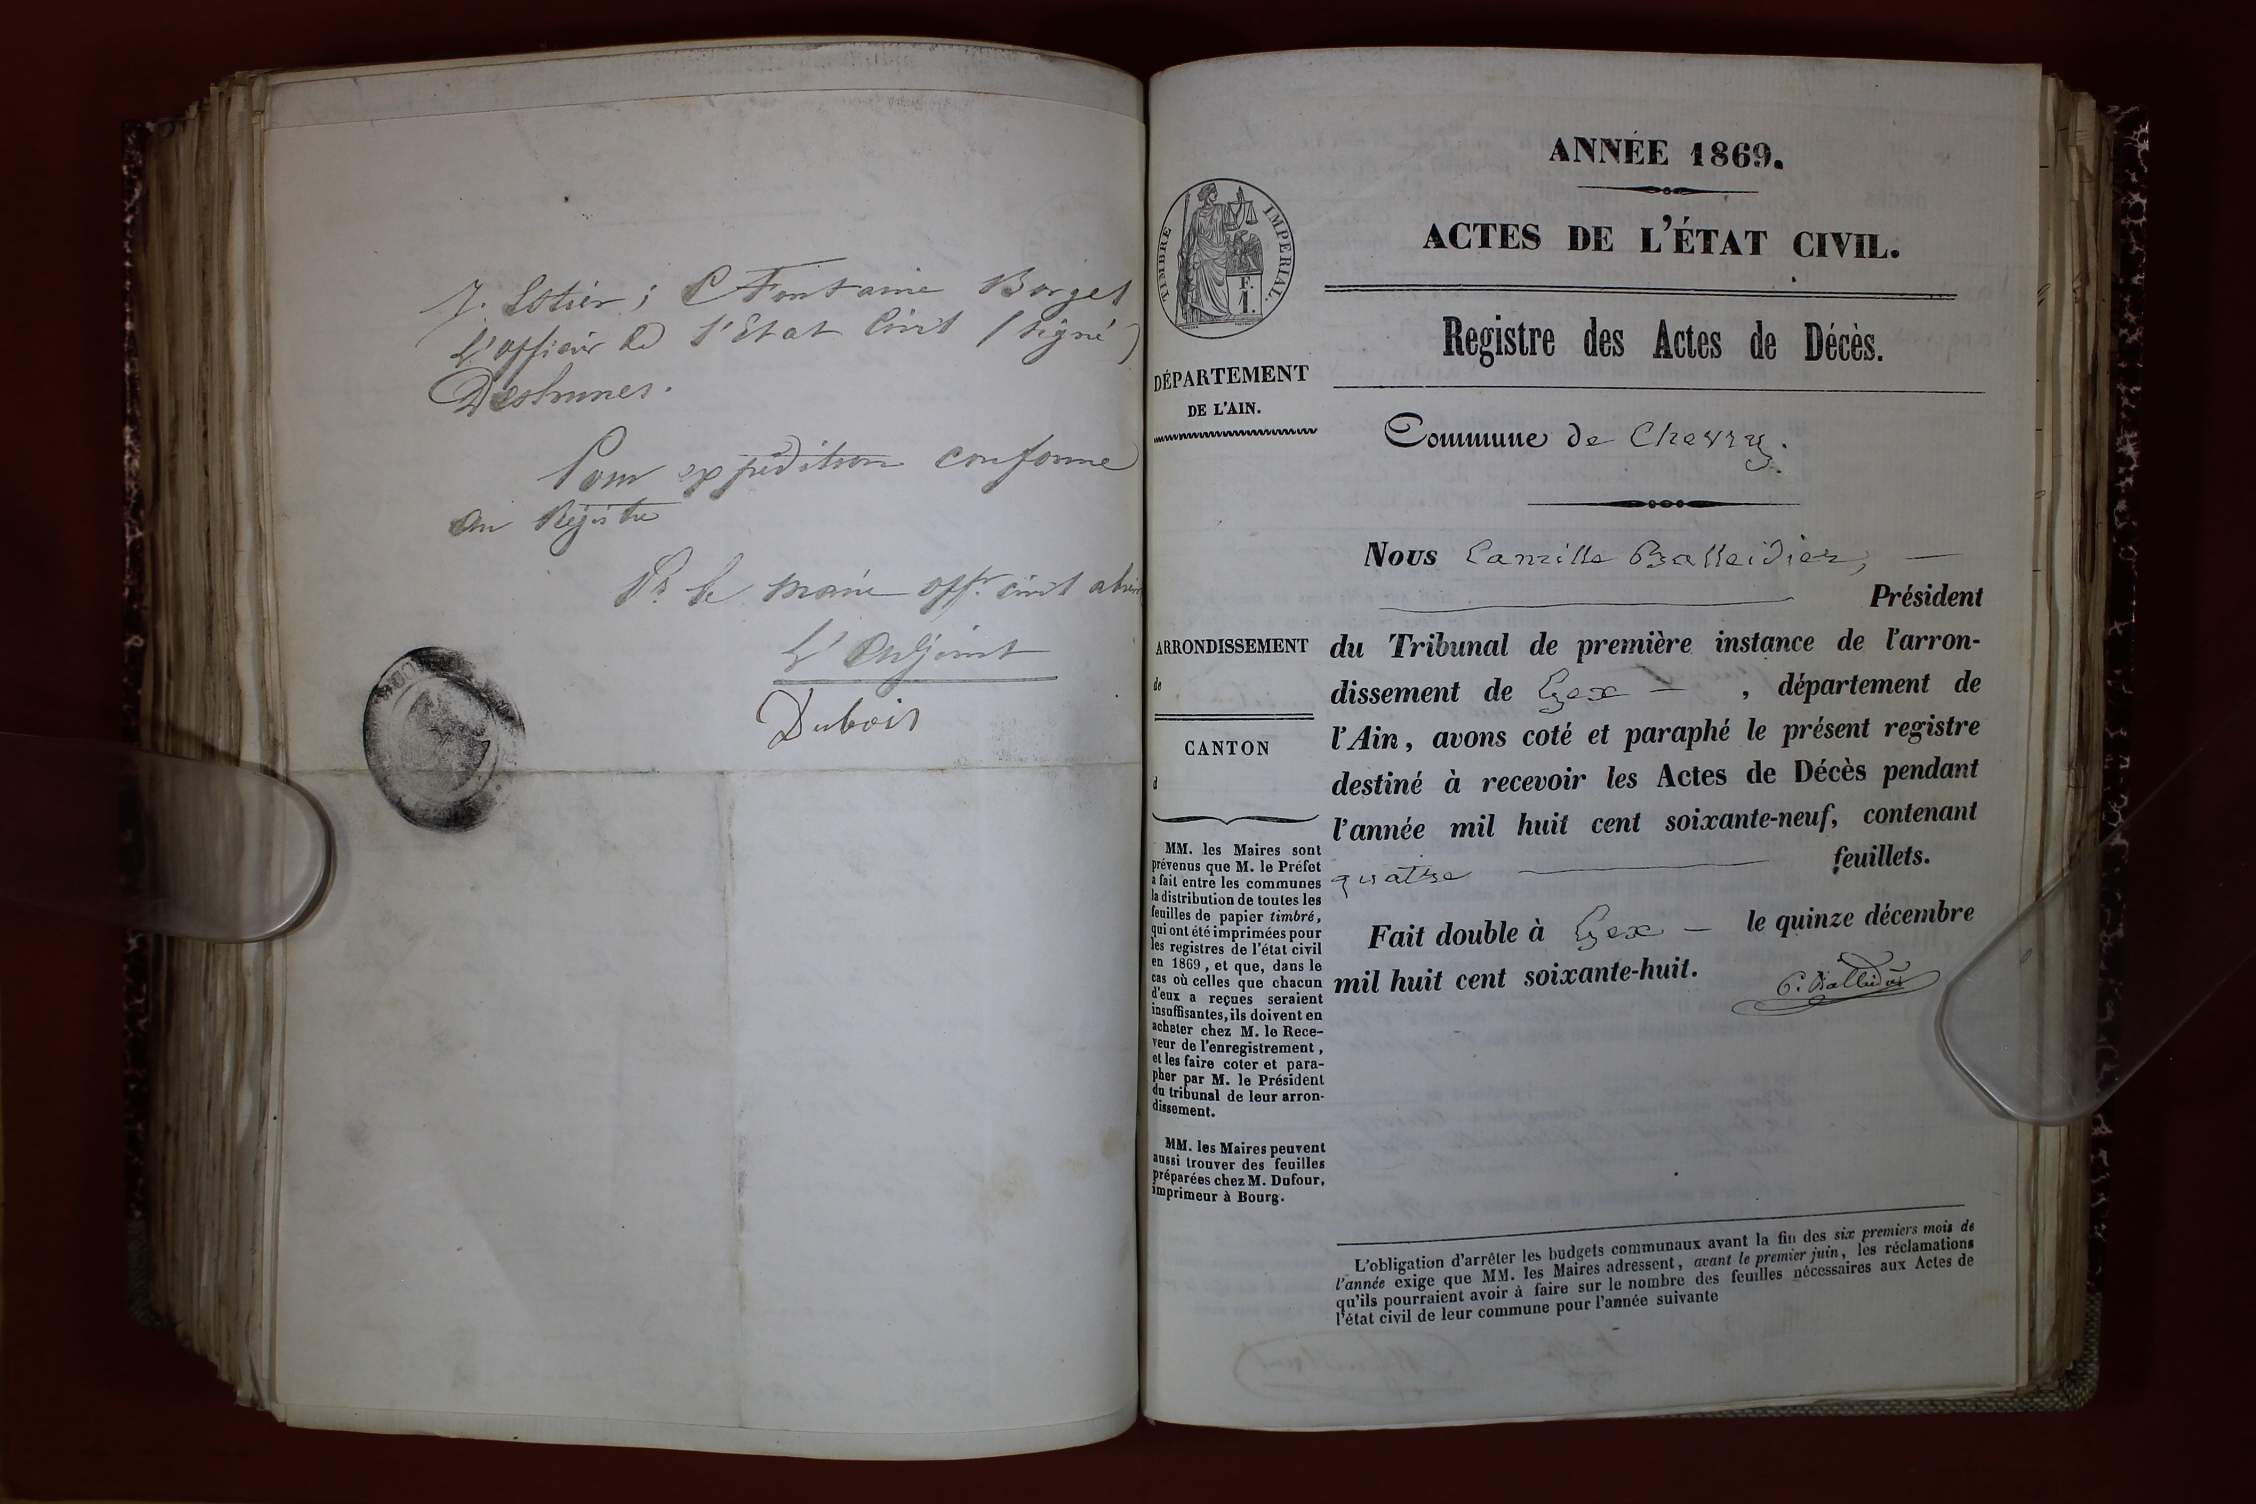 J. Lotier; C Fontaine Borget
L'officier de l'Etat Civil (signé)
Deshunes.
Pour expédition conforme
au Registre
Pr le maire offr civil
L'Adjoint
Dubois
ANNÉE 1869.
ACTES DE L'ÉTAT CIVIL.
Registre des Actes de Décès.
TIMBRE IMPERIAL.
F.
1.
DÉPARTEMENT
DE L'AIN.
Commune de Chevry.
Nous Camille Balleidier,
Président
ARRONDISSEMENT
de
CANTON
d
du Tribunal de première instance de l'arron-
dissement de Gex , département de
l'Ain, avons coté et paraphé le présent registre
destiné à recevoir les Actes de Décès pendant
l'année mil huit cent soixante-neuf, contenant
quatre feuillets.
Fait double à Gex le quinze décembre
mil huit cent soixante-huit.
C. Balleidier
MM. les Maires sont
prévenus que M. le Préfet
a fait entre les communes
la distribution de toutes les
feuilles de papier timbré,
qui ont été imprimées pour
les registres de l'état civil
en 1869, et que, dans le
cas où celles que chacun
d'eux a reçues seraient
insuffisantes, ils doivent en
acheter chez M. le Rece-
veur de l'enregistrement,
et les faire coter et para-
pher par M. le Président
du tribunal de leur arron-
dissement.
MM. les Maires peuvent
aussi trouver des feuilles
préparées chez M. Dufour,
imprimeur à Bourg.
L'obligation d'arrêter les budgets communaux avant la fin des six premiers mois de
l'année exige que MM. les Maires adressent, avant le premier juin, les réclamations
qu'ils pourraient avoir à faire sur le nombre des feuilles nécessaires aux Actes de
l'état civil de leur commune pour l'année suivante